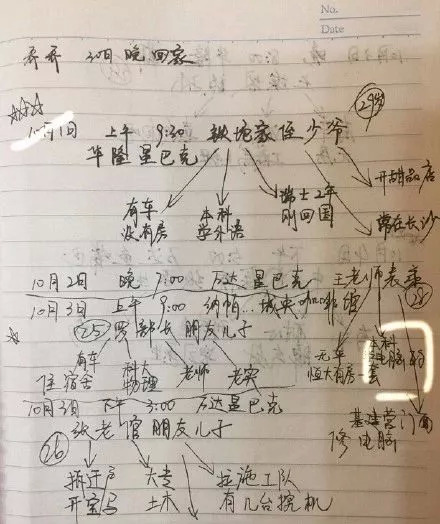 No.
Date
乔乔 30日晚回家
☆☆☆
10月1日 上午 9:30 独苗家 侄少爷 (29岁)
华隆星巴克
有车
没有房
本科
学外语
瑞士2年
刚回国
开甜品店
常在长沙
10月2日 晚 7:00 万达星巴克 王老师表亲 (28)
10月3日 上午 9:00 纳帕…城央
(25) 罗部长 朋友儿子
有车
住宿舍
科大
物理
老师
老实
无车
恒大有房一套
本科
电脑
基建营门面
修电脑
10月3日 下午 3:00 万达星巴克
(26) 张老官 朋友儿子
拆迁户
开宝马
大专
土木
拉施工队
有几台挖机